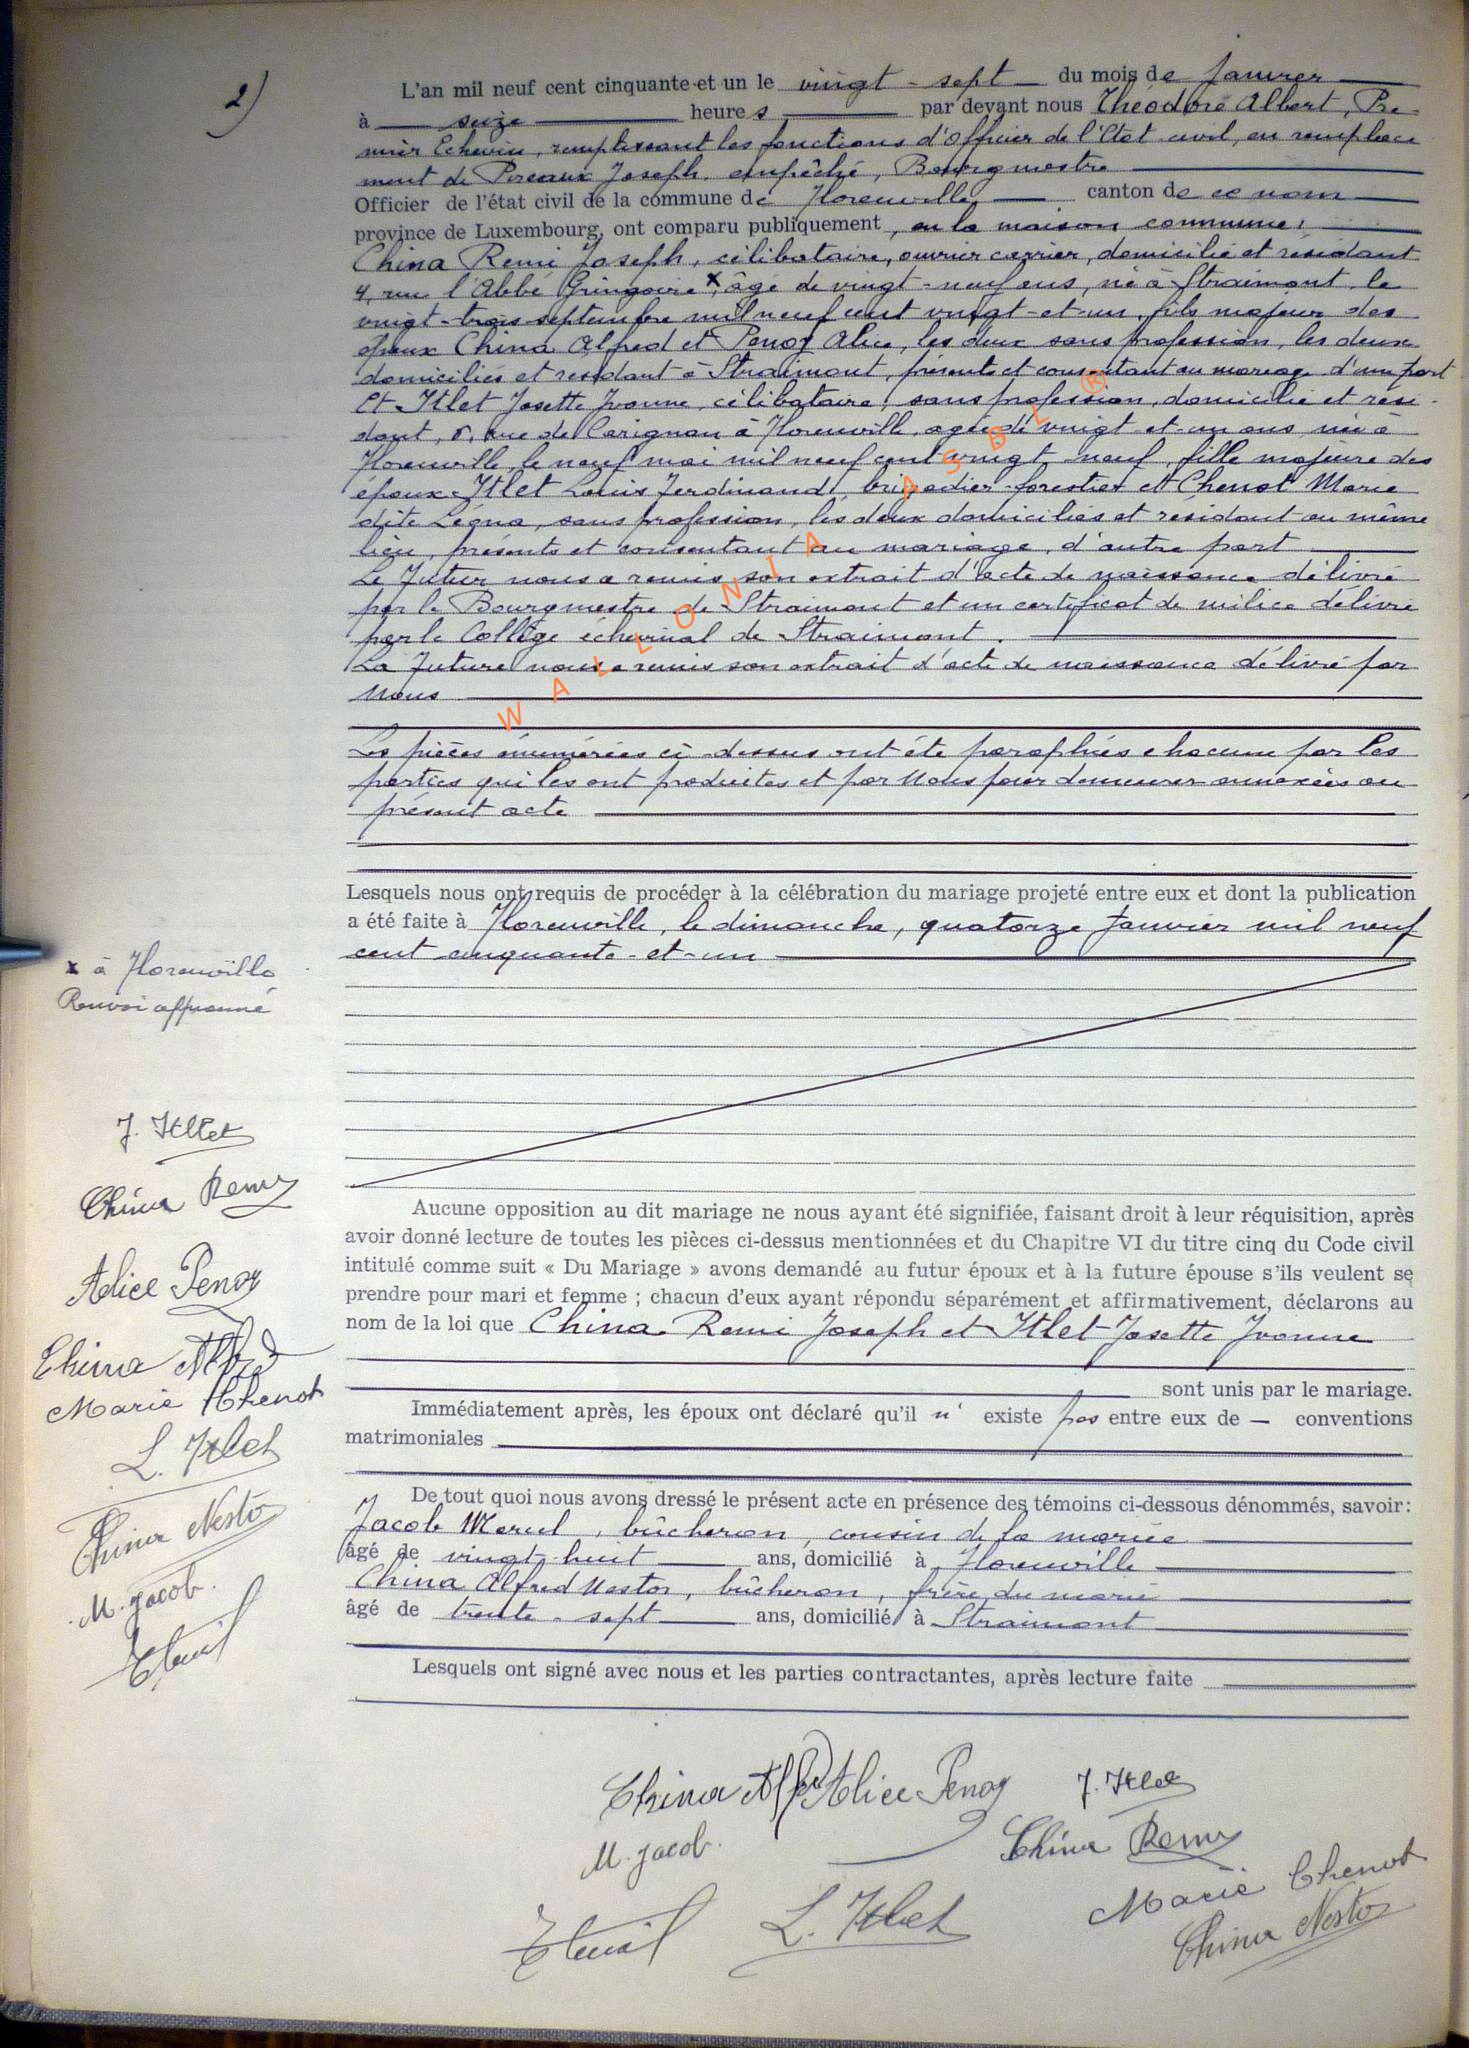 2)
L'an mil neuf cent cinquante et un le vingt - sept du mois de Janvier
à seize heures par devant nous Théodore Albert, Pre-
mier Echevin, remplissant les fonctions d'Officier de l'Etat civil, en remplace
ment de Pireaux Joseph, empêché, Bourgmestre
Officier de l'état civil de la commune de Florenville canton de ce nom
province de Luxembourg, ont comparu publiquement, en la maison commune:
China Remi Joseph, célibataire, ouvrier carrier, domicilié et résidant
4, rue l'Abbé Gringoire x, âgé de vingt-neuf ans, né à Straimont, le
vingt-trois septembre mil neuf cent vingt-et-un, fils majeur des
époux China Alfred et Penoy Alice, les deux sans profession, les deux
domiciliés et résidant à Straimont, présents et consentant au mariage d'une part
Et Itlet Josette Yvonne, célibataire, sans profession, domicilié et rési-
dant, rue de Carignan à Florenville, agée de vingt-et-un ans, née à
Florenville, le neuf mai mil neuf cent vingt-neuf, fille majeure des
époux Itlet Louis Ferdinand, brigadier-forestier et Chenot Marie
dite Légna, sans profession, les deux domiciliés et résidant au même
lieu, présents et consentant au mariage, d'autre part
Le Futur nous a remis son extrait d'acte de naissance délivré
par le Bourgmestre de Straimont et un certificat de milice délivré
par le Collège échevinal de Straimont.
La Future nous a remis son extrait d'acte de naissance délivré par
Nous
WALLONIA ASBL ®
Les pièces énumérées ci-dessus ont été paraphées chacune par les
parties qui les ont produites et par Nous pour demeurer annexées au
présent acte
Lesquels nous ont requis de procéder à la célébration du mariage projeté entre eux et dont la publication
a été faite à Florenville, le dimanche, quatorze Janvier mil neuf
cent cinquante-et-un
x à Florenville
Renvoi approuvé
J. Itlet
China Remy
Alice Penoy
China Alfred
Marie Chenot
L. Itlet
China Nestor
M. Jacob.
Aucune opposition au dit mariage ne nous ayant été signifiée, faisant droit à leur réquisition, après
avoir donné lecture de toutes les pièces ci-dessus mentionnées et du Chapitre VI du titre cinq du Code civil
intitulé comme suit « Du Mariage » avons demandé au futur époux et à la future épouse s'ils veulent se
prendre pour mari et femme ; chacun d'eux ayant répondu séparément et affirmativement, déclarons au
nom de la loi que China Remi Joseph et Itlet Josette Yvonne
sont unis par le mariage.
Immédiatement après, les époux ont déclaré qu'il n' existe pas entre eux de — conventions
matrimoniales
De tout quoi nous avons dressé le présent acte en présence des témoins ci-dessous dénommés, savoir :
Jacob Marcel, bûcheron, cousin de la mariée
âgé de vingt-huit ans, domicilié à Florenville
China Alfred Nestor, bûcheron, frère du marié
âgé de trente - sept ans, domicilié à Straimont
Lesquels ont signé avec nous et les parties contractantes, après lecture faite
China Alfred Alice Penoy J. Itlet
M. Jacob. China Remy
L. Itlet Marie Chenot
China Nestor